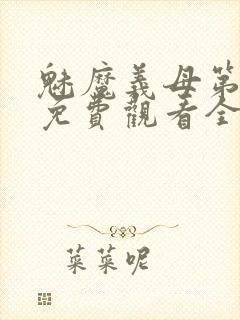 魅魔義母第
免費觀看全
菜菜呢